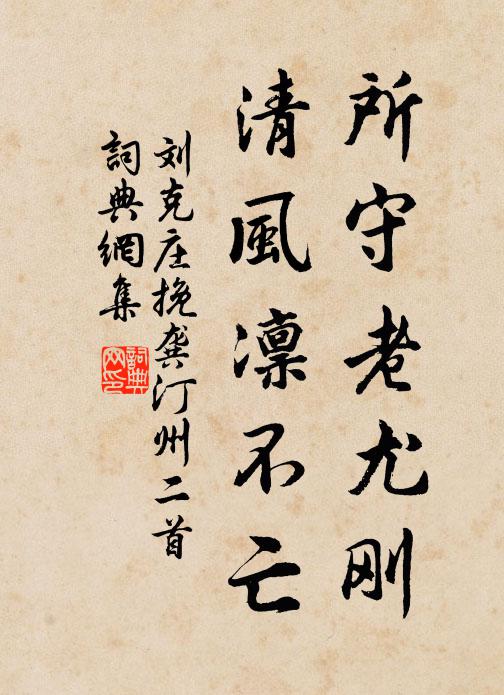 所守老尤刚
清風凜不亡
刘克庄挽龚汀州二首
詞典網集
詞典網印